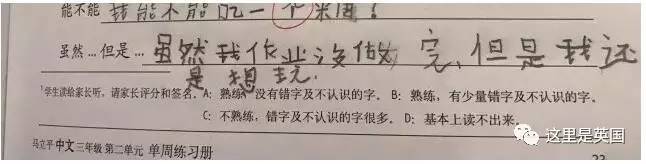 能不能 我能不能吃一个米周！
虽然…但是… 虽然我作业没做完，但是我还
是想玩.
¹学生读给家长听，请家长评分和签名。A: 熟练，没有错字及不认识的字。 B: 熟练，有少量错字及不认识的字。
C: 不熟练，错字及不认识的字很多。 D: 基本上读不出来。
这里是英国
马立平中文三年级 第二单元 单周练习册 23